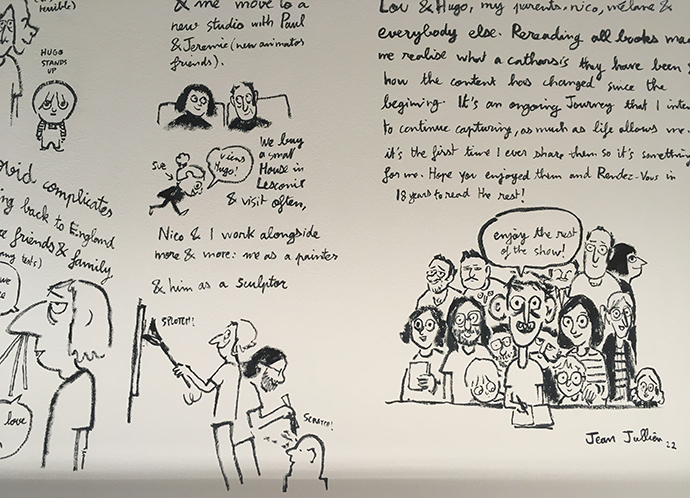 terrible)
HUGO
STANDS
UP
complicates
going back to England
friends & family
love
& me move to a
new studio with Paul
& Jeremie (new animators
friends).
We buy
a small
House in
Lesconil
& visit often,
SUE
viens
Hugo!
Nico & I work alongside
more & more: me as a painter
& him as a sculptor
SPLOTCH!
SCRATCH!
Lou & Hugo, my parents, nico, mélanie &
everybody else. Rereading all books made
me realise what a catharsis they have been &
how the content has changed since the
begining. It's an ongoing Journey that I intend
to continue capturing, as much as life allows me.
it's the first time I ever share them so it's something
for me. Hope you enjoyed them and Rendez-Vous in
18 years to read the rest!
enjoy the rest
of the show!
Jean Jullien 22